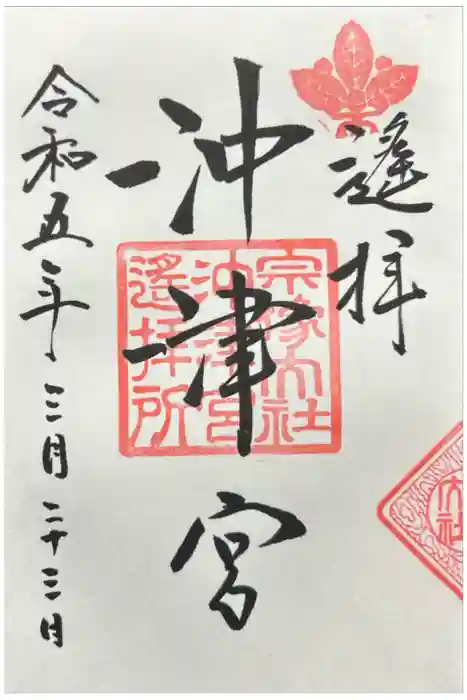 遙拝
沖津宮
令和五年三月二十三日
宗像大社
沖津宮
遙拝所
大社